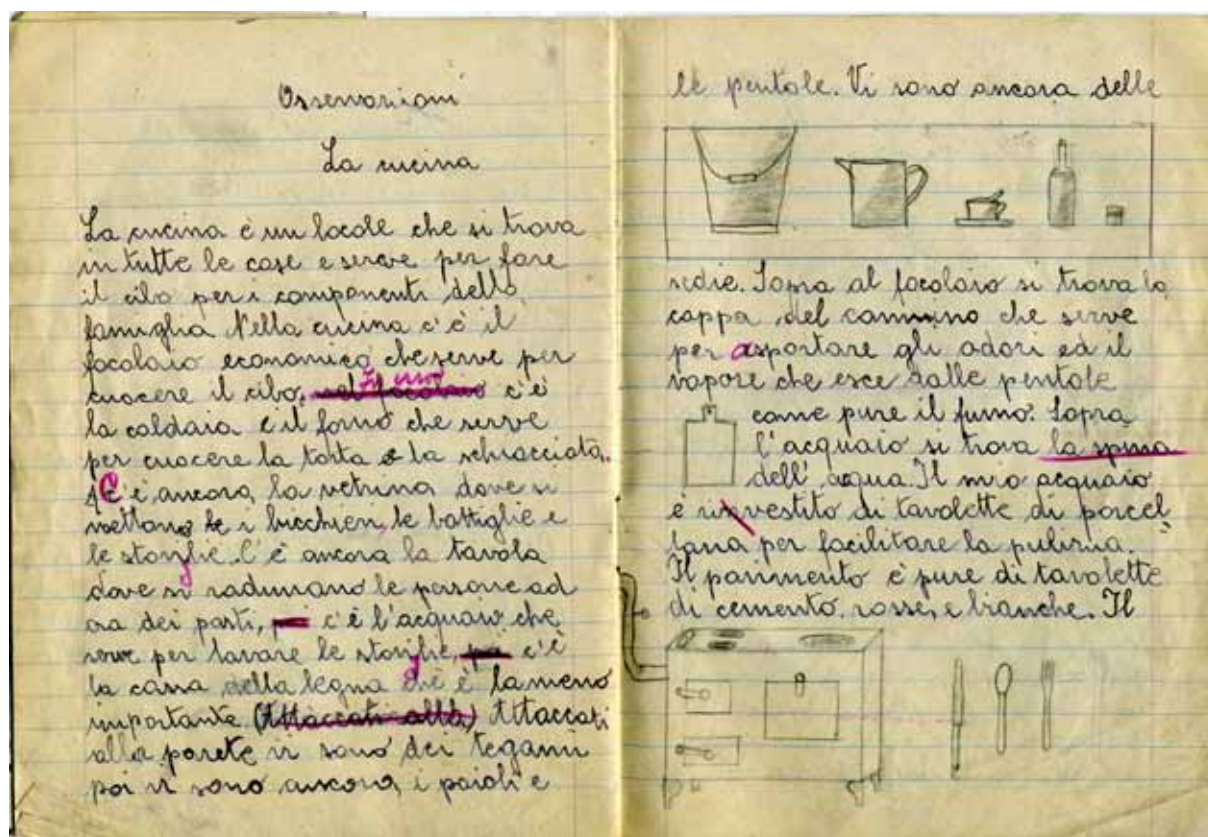 Osservazioni
La cucina
La cucina è un locale che si trova
in tutte le case e serve per fare
il cibo per i componenti della
famiglia Nella cucina c'è il
focolaio economico che serve per
cuocere il cibo, nel focolaio c'è
la caldaia e il forno che serve
per cuocere la torta e la schiacciata.
C'è ancora la vetrina dove si
mettano i bicchieri, le battiglie e
le stoviglie. C'è ancora la tavola
dove si radunano le persone ad
ora dei pasti, c'è l'acquaio che
serve per lavare le stoviglie, c'è
la cassa della legna che è la meno
importante (Attaccati alla) Attaccati
alla parete vi sono dei tegami
poi vi sono ancora i paioli e
le pentole. Vi sono ancora delle
sedie. Sopra al focolaio si trova la
cappa del cammino che serve
per asportare gli odori ed il
vapore che esce dalle pentole
come pure il fumo. Sopra
l'acquaio si trova la spina
dell'acqua. Il mio acquaio
è rinvestito di tavolette di porcel
lana per facilitare la pulizia.
Il pavimento è pure di tavolette
di cemento rosse, e bianche. Il